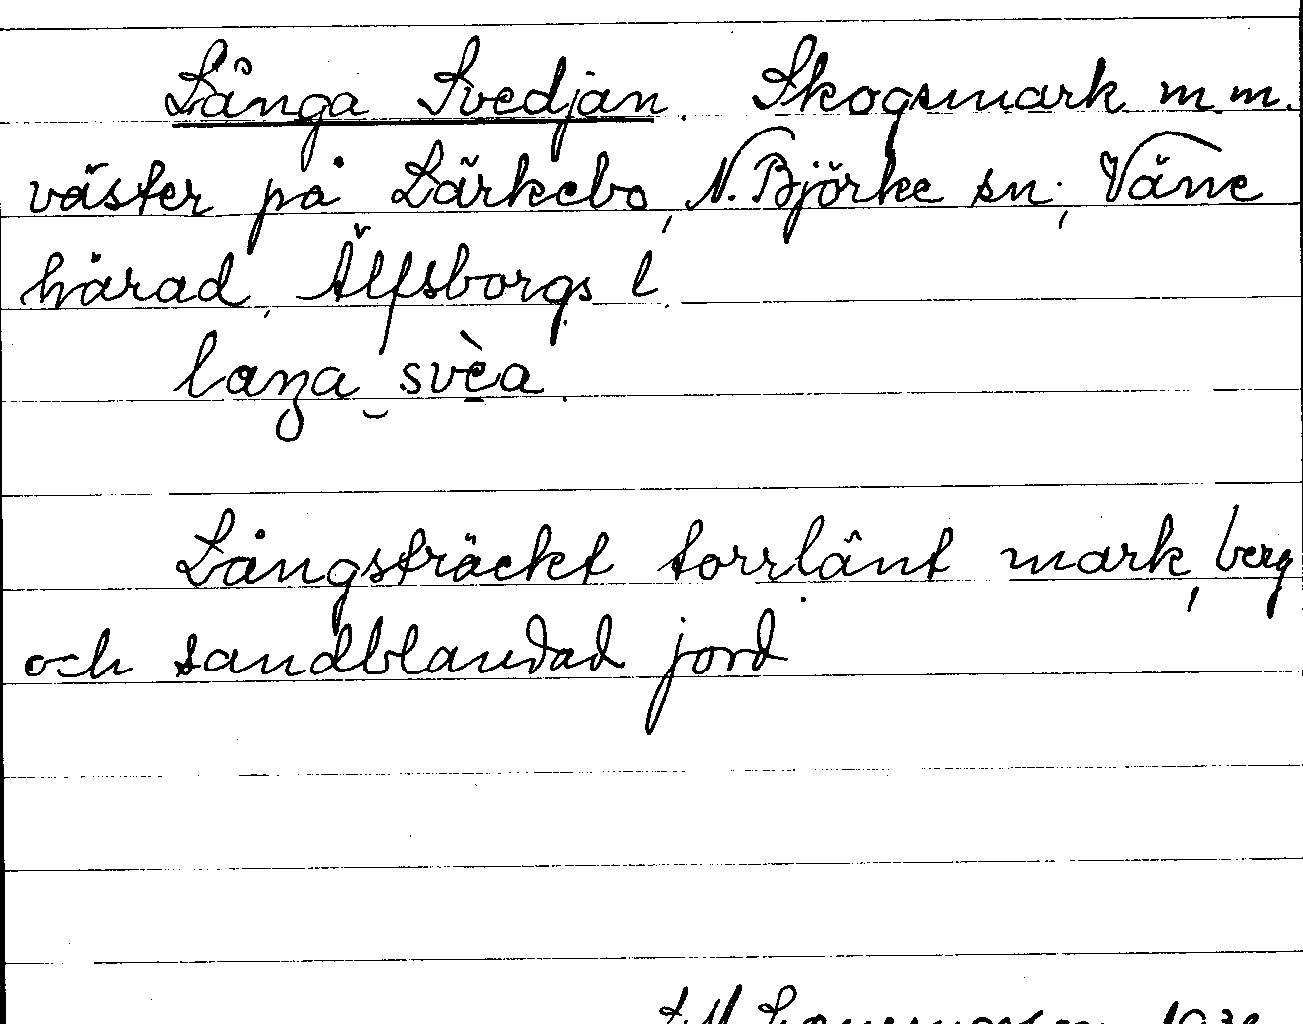 Långa Svedjan. Skogsmark m.m.
väster på Lärkebo, N. Björke sn; Väne
härad, Älfsborgs l.
laŋa svèa.
Långsträckt torrlänt mark, berg
och sandblandad jord